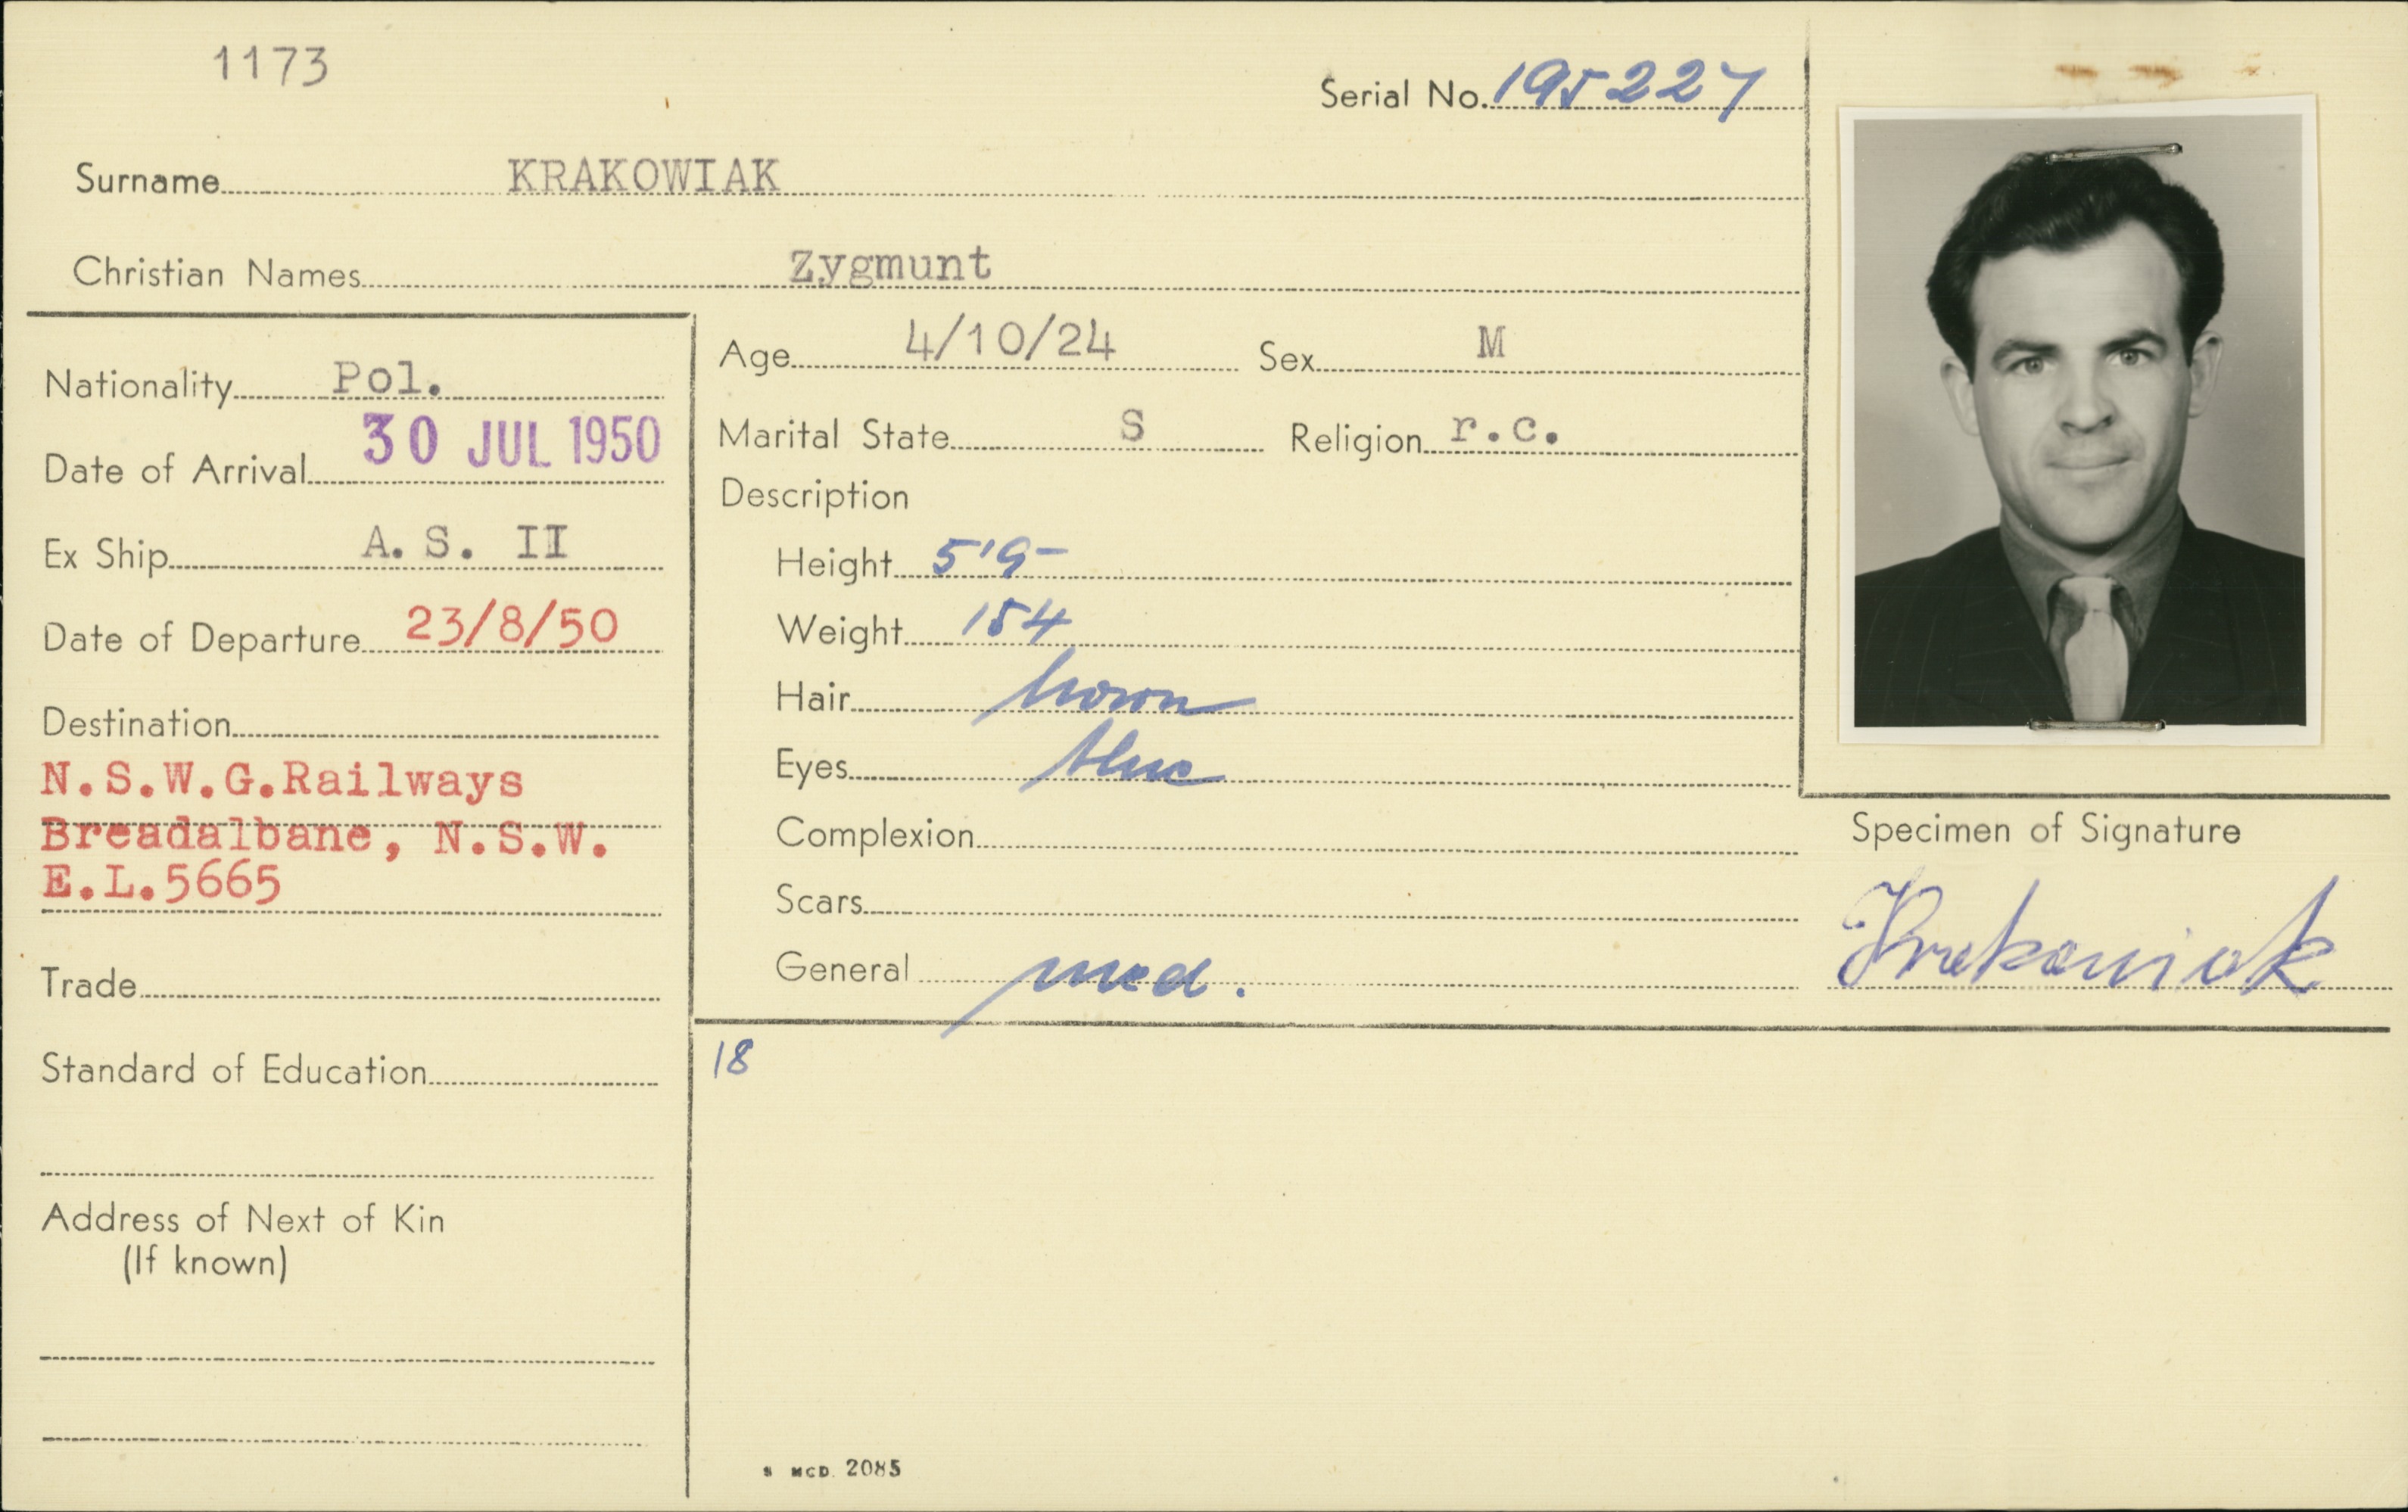 1173
Serial No. 195227
Surname KRAKOWIAK
Christian Names Zygmunt
Nationality Pol.
Date of Arrival 30 JUL 1950
Ex Ship A.S. II
Date of Departure 23/8/50
Destination
N.S.W.G.Railways
Breadalbane, N.S.W.
E.L.5665
Trade
Standard of Education
Address of Next of Kin
(If known)
Age 4/10/24 Sex M
Marital State S Religion r.c.
Description
Height 5'9-
Weight 154
Hair brown
Eyes blue
Complexion
Scars
General med.
Specimen of Signature
Krakowiak
18
S MCD. 2085